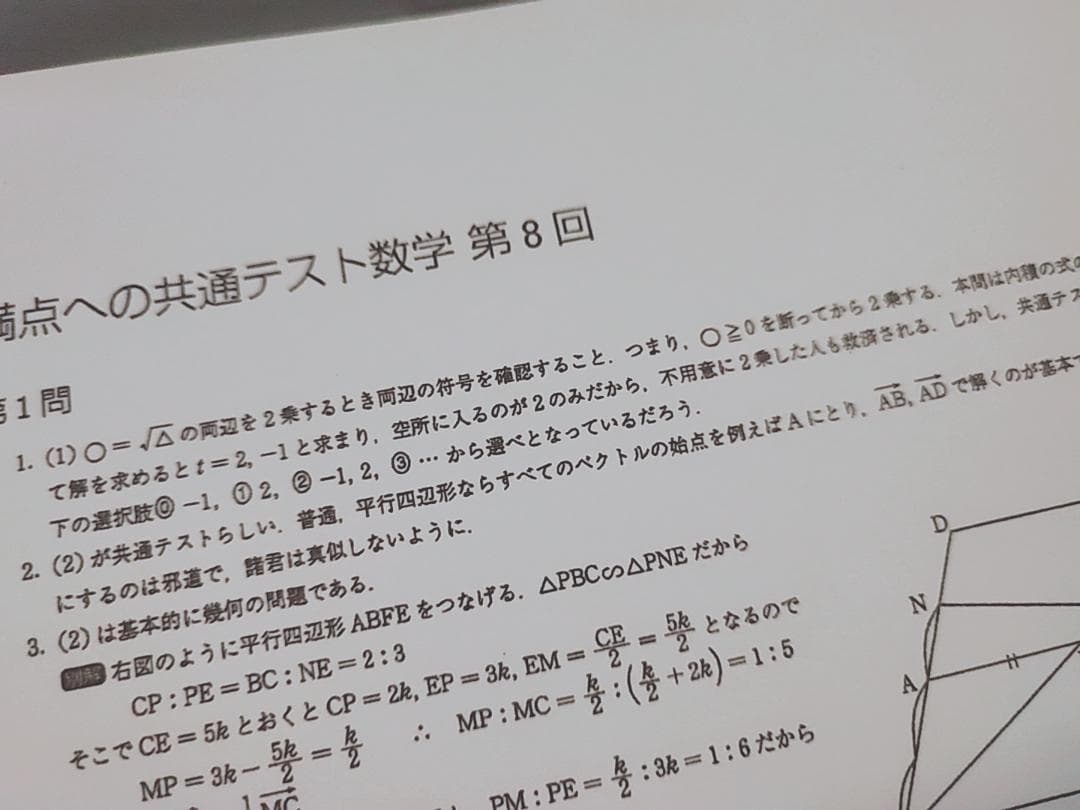 満点への共通テスト数学 第8回
第1問
1. (1) ○=√△ の両辺を2乗するとき両辺の符号を確認すること．つまり，○≧0を断ってから2乗する．本問は内積の式の
て解を求めると t=2, −1 と求まり，空所に入るのが2のみだから，不用意に2乗した人も救済される．しかし，共通テス
下の選択肢⓪ −1, ① 2, ② −1, 2, ③ … から選べとなっているだろう．
2. (2)が共通テストらしい．普通，平行四辺形ならすべてのベクトルの始点を例えばAにとり，AB→, AD→ で解くのが基本で
にするのは邪道で，諸君は真似しないように．
3. (2)は基本的に幾何の問題である．
別解 右図のように平行四辺形ABFEをつなげる．△PBC∽△PNEだから
CP : PE = BC : NE = 2 : 3
そこで CE = 5k とおくと CP = 2k, EP = 3k, EM = CE/2 = 5k/2 となるので
MP = 3k − 5k/2 = k/2 ∴ MP : MC = k/2 : (k/2 + 2k) = 1 : 5
PM : PE = k/2 : 3k = 1 : 6 だから
1 MC→
D
N
A